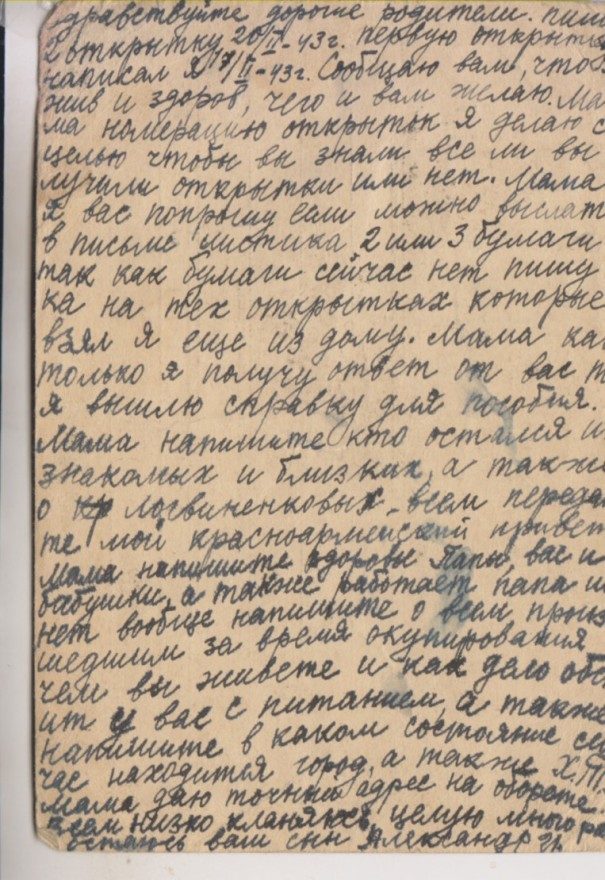 здравствуйте дорогие родители. пишу
2 открытку 20/II-43г. первую открытку
написал я 17/II-43г. Сообщаю вам, что я
жив и здоров, чего и вам желаю. Ма
ма номерацию открыток я делаю с
целью чтобы вы знали все ли вы
лучили открытки или нет. Мама
я вас попрошу если можно выслат
в письме листика 2 или 3 бумаги
так как бумаги сейчас нет пишу
ка на тех открытках которые
взял я еще из дому. Мама как
только я получу ответ от вас т
я вышлю справку для пособия.
Мама напишите кто остался и
знакомых и близких, а также
о кр логвиненковых. всем переда
те мой красноармейский привет
Мама напишите здоровы папы, вас и
бабушки, а также работает папа и
нет вообще напишите о всем произ
шедшим за время окупирования
чем вы живете и как дело обс
ит у вас с питанием, а также
напишите в каком состояние сей
час находится город, а также Х.Т.
Мама даю точный адрес на обороте.
всем низко кланяюсь, целую много ра
остаюсь ваш сын Александр